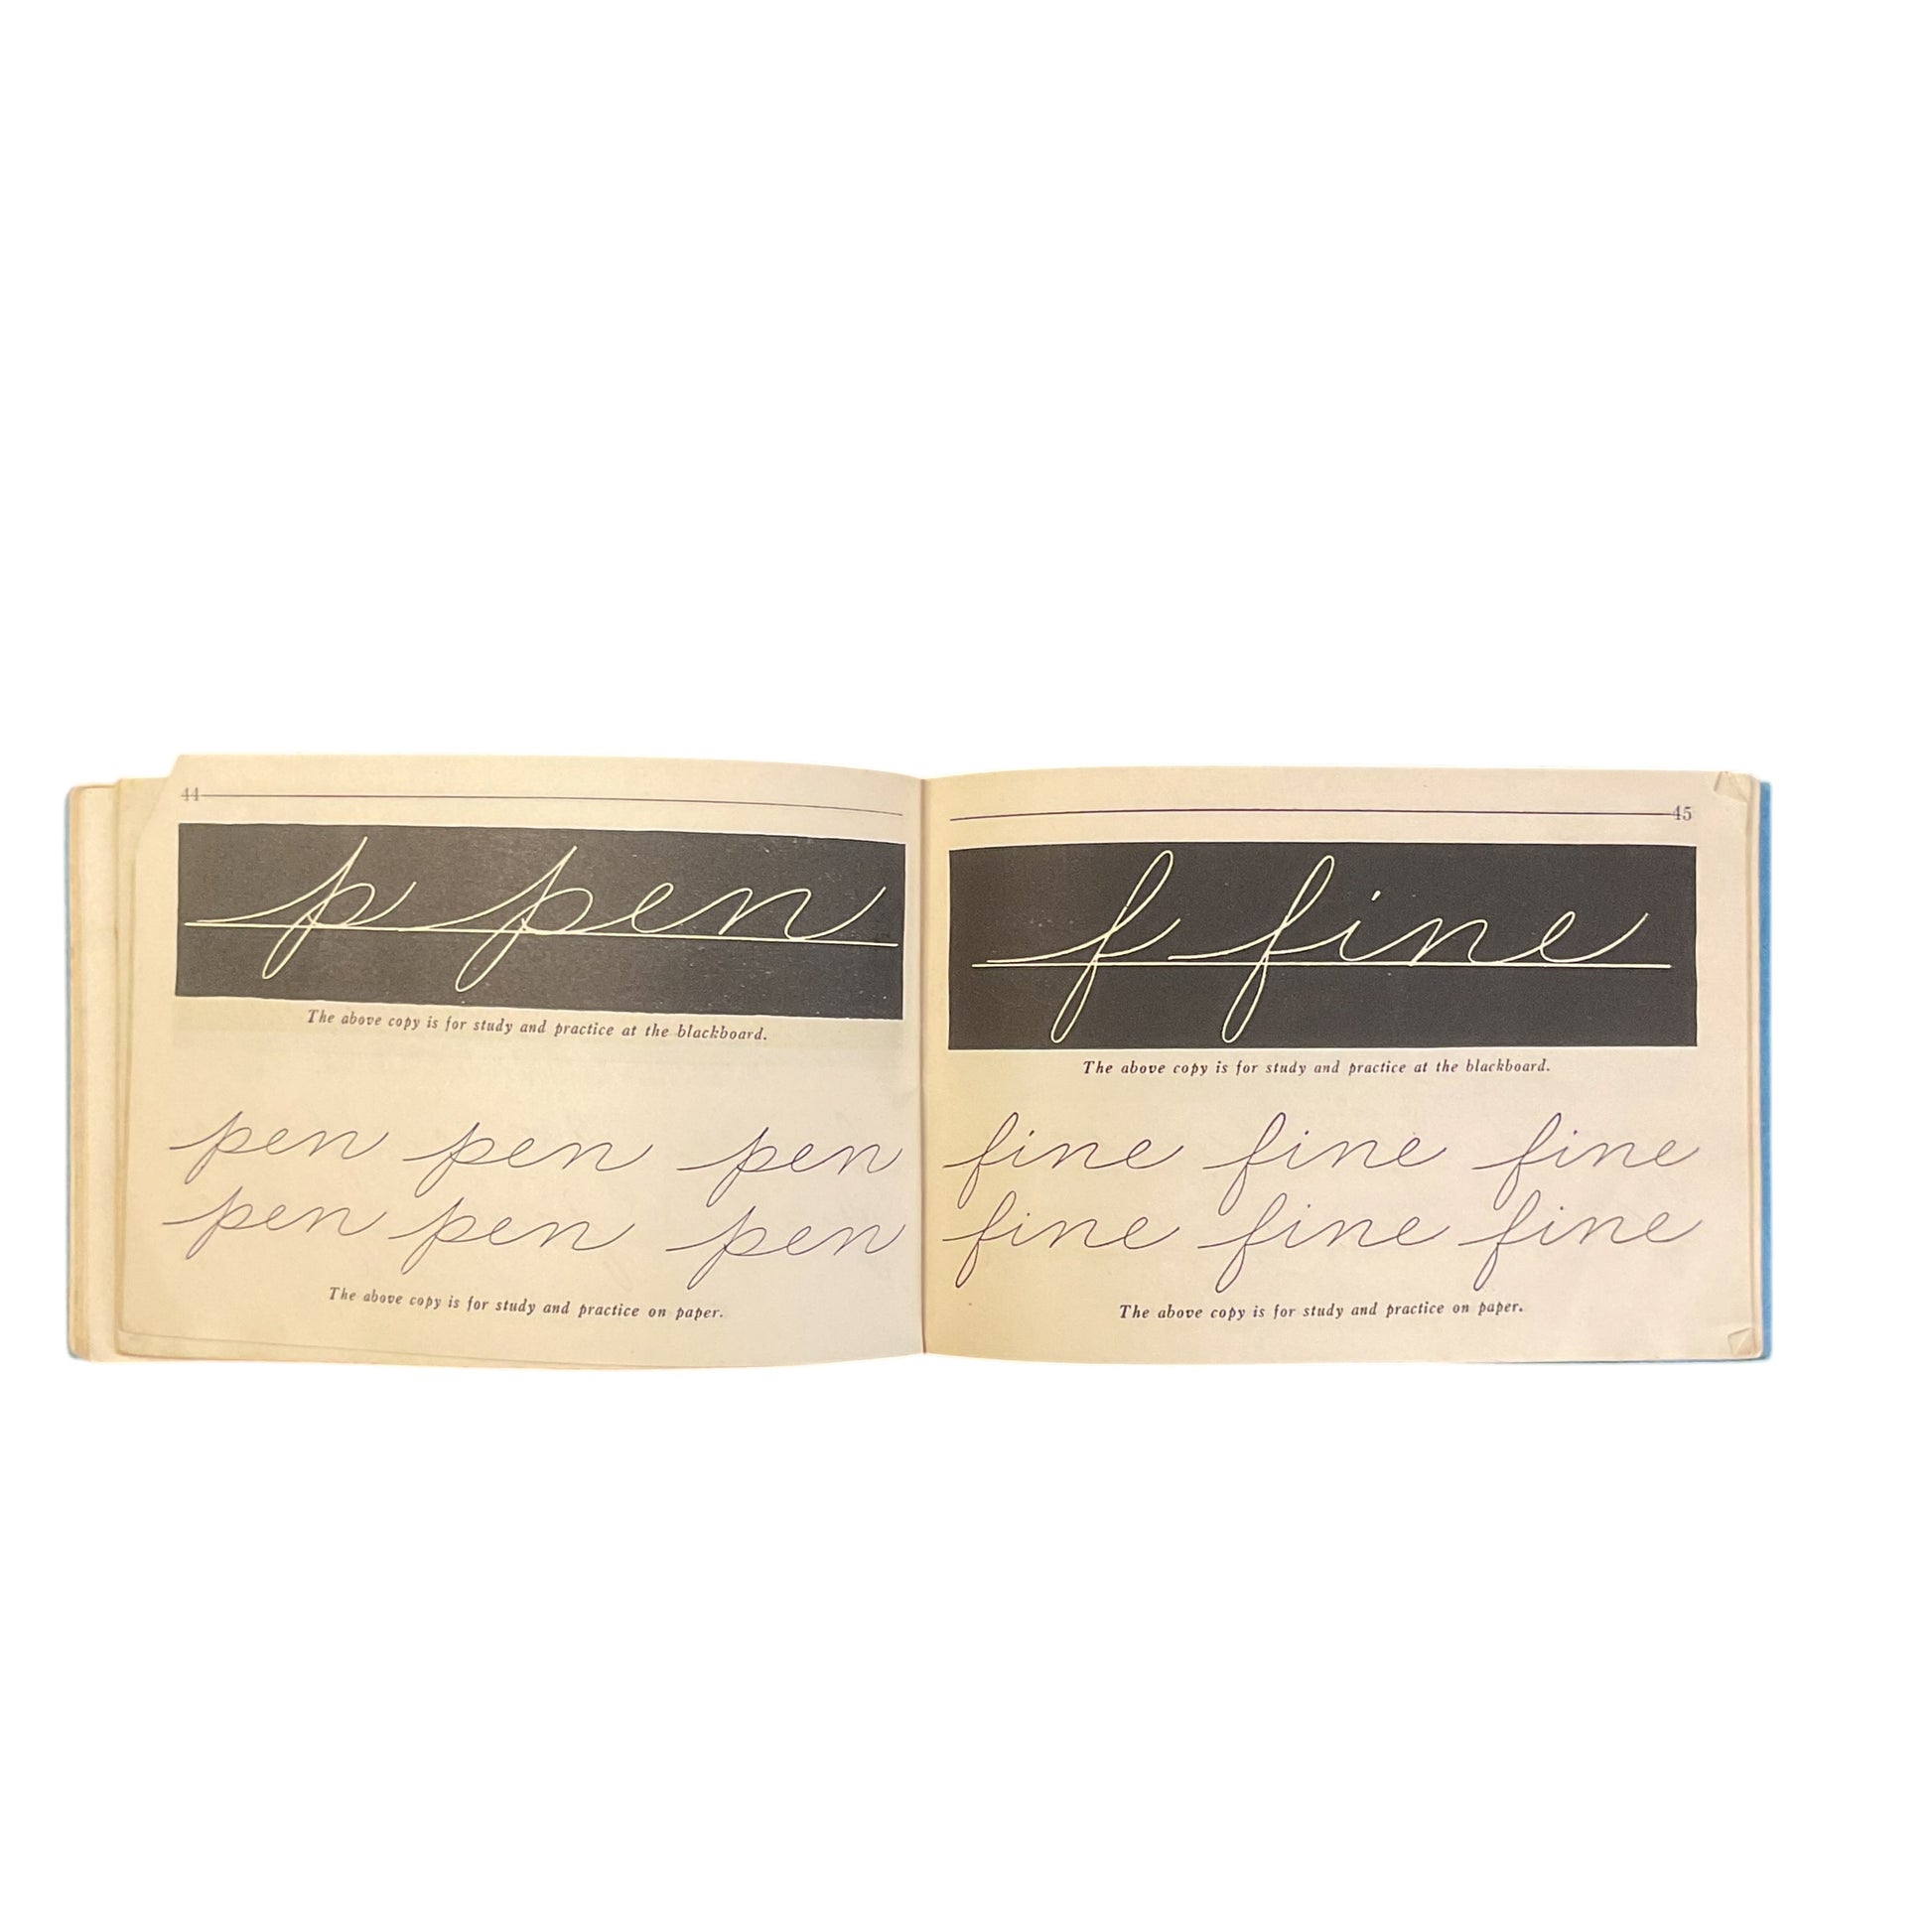 44
p pen
The above copy is for study and practice at the blackboard.
pen pen pen
pen pen pen
The above copy is for study and practice on paper.
45
f fine
The above copy is for study and practice at the blackboard.
fine fine fine
fine fine fine
The above copy is for study and practice on paper.